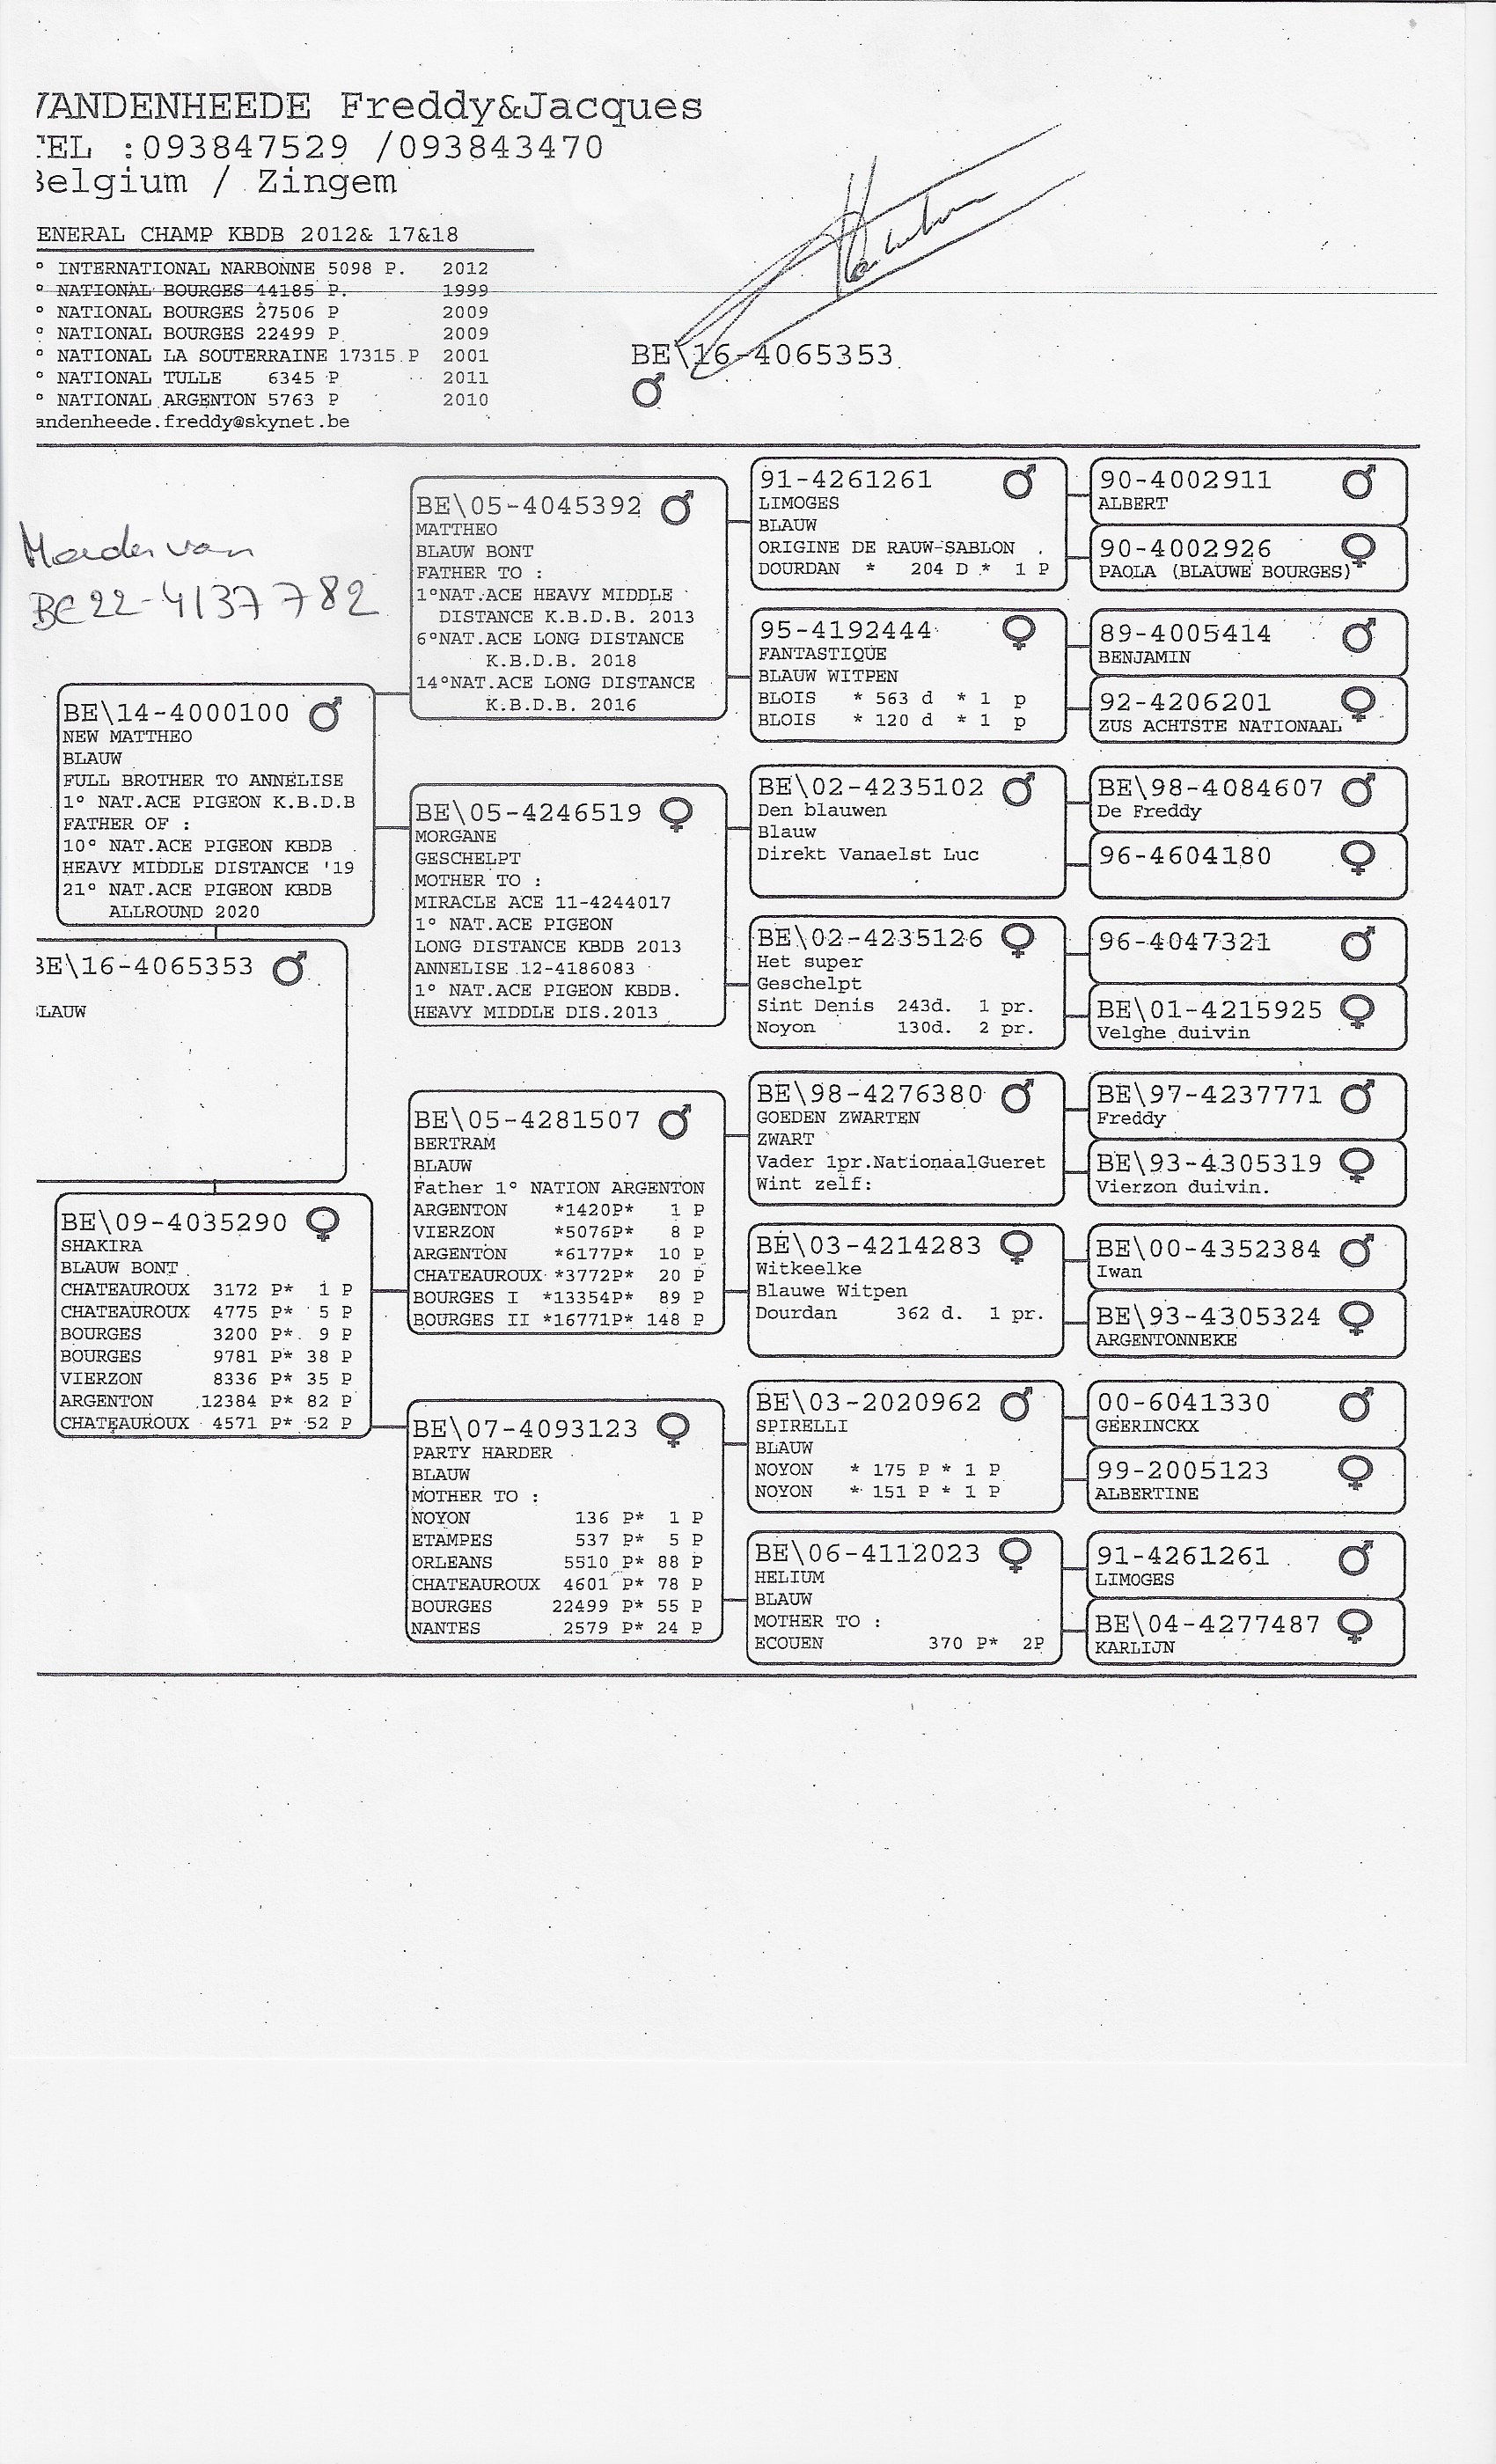 VANDENHEEDE Freddy&Jacques
TEL :093847529 /093843470
Belgium / Zingem
ENERAL CHAMP KBDB 2012& 17&18
° INTERNATIONAL NARBONNE 5098 P. 2012
° NATIONAL BOURGES 44185 P. 1999
° NATIONAL BOURGES 27506 P 2009
° NATIONAL BOURGES 22499 P 2009
° NATIONAL LA SOUTERRAINE 17315 P 2001
° NATIONAL TULLE 6345 P 2011
° NATIONAL ARGENTON 5763 P 2010
andenheede.freddy@skynet.be
BE\16-4065353
♂
van
BE22-4137782
BE\14-4000100 ♂
NEW MATTHEO
BLAUW
FULL BROTHER TO ANNELISE
1° NAT.ACE PIGEON K.B.D.B
FATHER OF :
10° NAT.ACE PIGEON KBDB
HEAVY MIDDLE DISTANCE '19
21° NAT.ACE PIGEON KBDB
ALLROUND 2020
BE\16-4065353 ♂
LAUW
BE\09-4035290 ♀
SHAKIRA
BLAUW BONT
CHATEAUROUX 3172 P* 1 P
CHATEAUROUX 4775 P* 5 P
BOURGES 3200 P* 9 P
BOURGES 9781 P* 38 P
VIERZON 8336 P* 35 P
ARGENTON 12384 P* 82 P
CHATEAUROUX 4571 P* 52 P
BE\05-4045392 ♂
MATTHEO
BLAUW BONT
FATHER TO :
1°NAT.ACE HEAVY MIDDLE
DISTANCE K.B.D.B. 2013
6°NAT.ACE LONG DISTANCE
K.B.D.B. 2018
14°NAT.ACE LONG DISTANCE
K.B.D.B. 2016
BE\05-4246519 ♀
MORGANE
GESCHELPT
MOTHER TO :
MIRACLE ACE 11-4244017
1° NAT.ACE PIGEON
LONG DISTANCE KBDB 2013
ANNELISE 12-4186083
1° NAT.ACE PIGEON KBDB.
HEAVY MIDDLE DIS.2013
BE\05-4281507 ♂
BERTRAM
BLAUW
Father 1° NATION ARGENTON
ARGENTON *1420P* 1 P
VIERZON *5076P* 8 P
ARGENTON *6177P* 10 P
CHATEAUROUX *3772P* 20 P
BOURGES I *13354P* 89 P
BOURGES II *16771P* 148 P
BE\07-4093123 ♀
PARTY HARDER
BLAUW
MOTHER TO :
NOYON 136 P* 1 P
ETAMPES 537 P* 5 P
ORLEANS 5510 P* 88 P
CHATEAUROUX 4601 P* 78 P
BOURGES 22499 P* 55 P
NANTES 2579 P* 24 P
91-4261261 ♂
LIMOGES
BLAUW
ORIGINE DE RAUW-SABLON
DOURDAN * 204 D * 1 P
95-4192444 ♀
FANTASTIQUE
BLAUW WITPEN
BLOIS * 563 d * 1 p
BLOIS * 120 d * 1 p
BE\02-4235102 ♂
Den blauwen
Blauw
Direkt Vanaelst Luc
BE\02-4235126 ♀
Het super
Geschelpt
Sint Denis 243d. 1 pr.
Noyon 130d. 2 pr.
BE\98-4276380 ♂
GOEDEN ZWARTEN
ZWART
Vader 1pr.NationaalGueret
Wint zelf:
BE\03-4214283 ♀
Witkeelke
Blauwe Witpen
Dourdan 362 d. 1 pr.
BE\03-2020962 ♂
SPIRELLI
BLAUW
NOYON * 175 P * 1 P
NOYON * 151 P * 1 P
BE\06-4112023 ♀
HELIUM
BLAUW
MOTHER TO :
ECOUEN 370 P* 2P
90-4002911 ♂
ALBERT
90-4002926 ♀
PAOLA (BLAUWE BOURGES)
89-4005414 ♂
BENJAMIN
92-4206201 ♀
ZUS ACHTSTE NATIONAAL
BE\98-4084607 ♂
De Freddy
96-4604180 ♀
96-4047321 ♂
BE\01-4215925 ♀
Velghe duivin
BE\97-4237771 ♂
Freddy
BE\93-4305319 ♀
Vierzon duivin.
BE\00-4352384 ♂
Iwan
BE\93-4305324 ♀
ARGENTONNEKE
00-6041330 ♂
GEERINCKX
99-2005123 ♀
ALBERTINE
91-4261261 ♂
LIMOGES
BE\04-4277487 ♀
KARLIJN